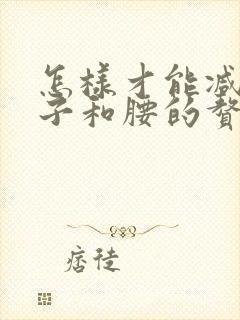 怎樣才能減
子和腰的贅
痞徒